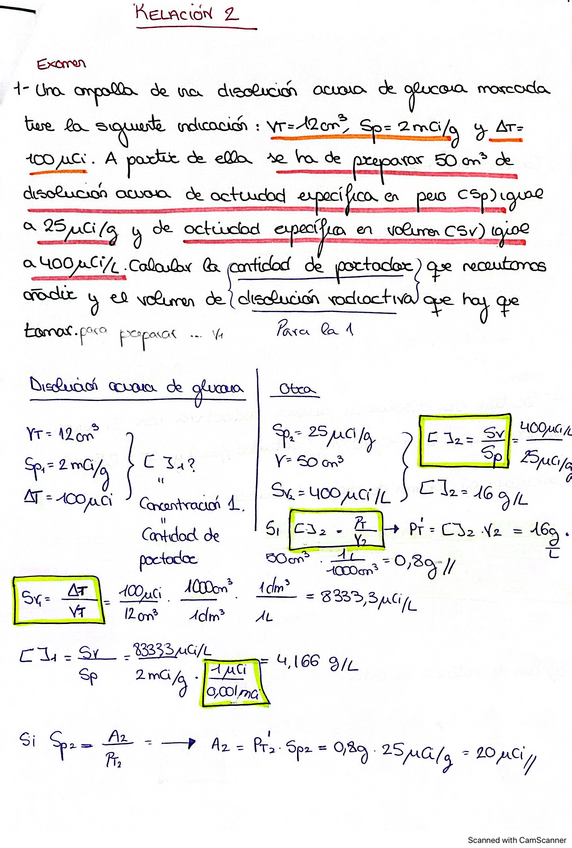 RELACIÓN 2
Examen
1- Una ampolla de una disolución acuosa de glucosa marcada
tiene la siguiente indicación: VT=12cm³, Sp=2mCi/g y ΔT=
100μCi. A partir de ella se ha de preparar 50 cm³ de
disolución acuosa de actividad específica en peso (Sp) igual
a 25μCi/g y de actividad específica en volumen (Sv) igual
a 400μCi/L. Calcular la (cantidad de portador) que necesitamos
añadir y el volumen de {disolución radioactiva} que hay que
tomar. para preparar ... V1
Para la 1
Disolución acuosa de glucosa
VT = 12cm³
Sp1 = 2mCi/g
ΔT = 100μCi
[ ]1?
"
Concentración 1.
"
Cantidad de
portador
Otra
Sp2 = 25μCi/g
V = 50cm³
Sv2 = 400μCi/L
[ ]2 = Sv/Sp = 400μCi/L / 25μCi/g
[ ]2 = 16 g/L
Si [ ]2 = PT/V2 → PT' = [ ]2 · V2 = 16g/L ·
50cm³ · 1L/1000cm³ = 0,8g //
Sv1 = ΔT/VT = 100μCi/12cm³ · 1000cm³/1dm³ · 1dm³/1L = 8333,3μCi/L
[ ]1 = Sv/Sp = 8333,3μCi/L / 2mCi/g · 1μCi/0,001mCi = 4,166 g/L
Si Sp2 = A2/PT2 = → A2 = PT2' · Sp2 = 0,8g · 25μCi/g = 20μCi //
Scanned with CamScanner